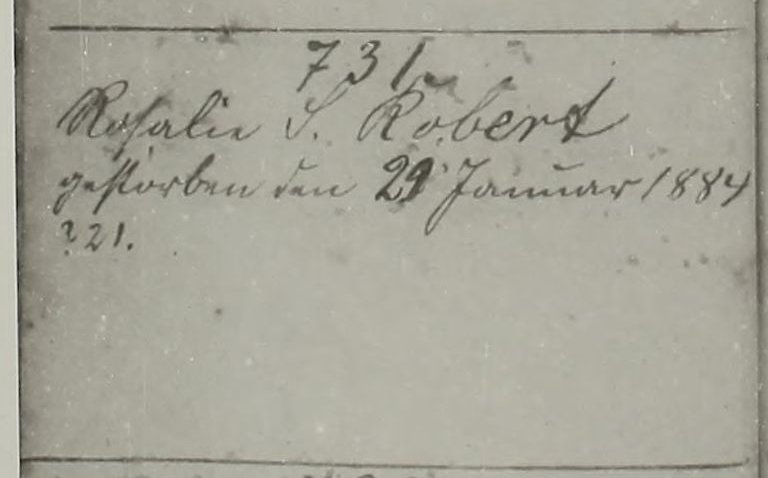 731.
Rosalie S. Robert
gestorben den 29 Januar 1884
? 21.